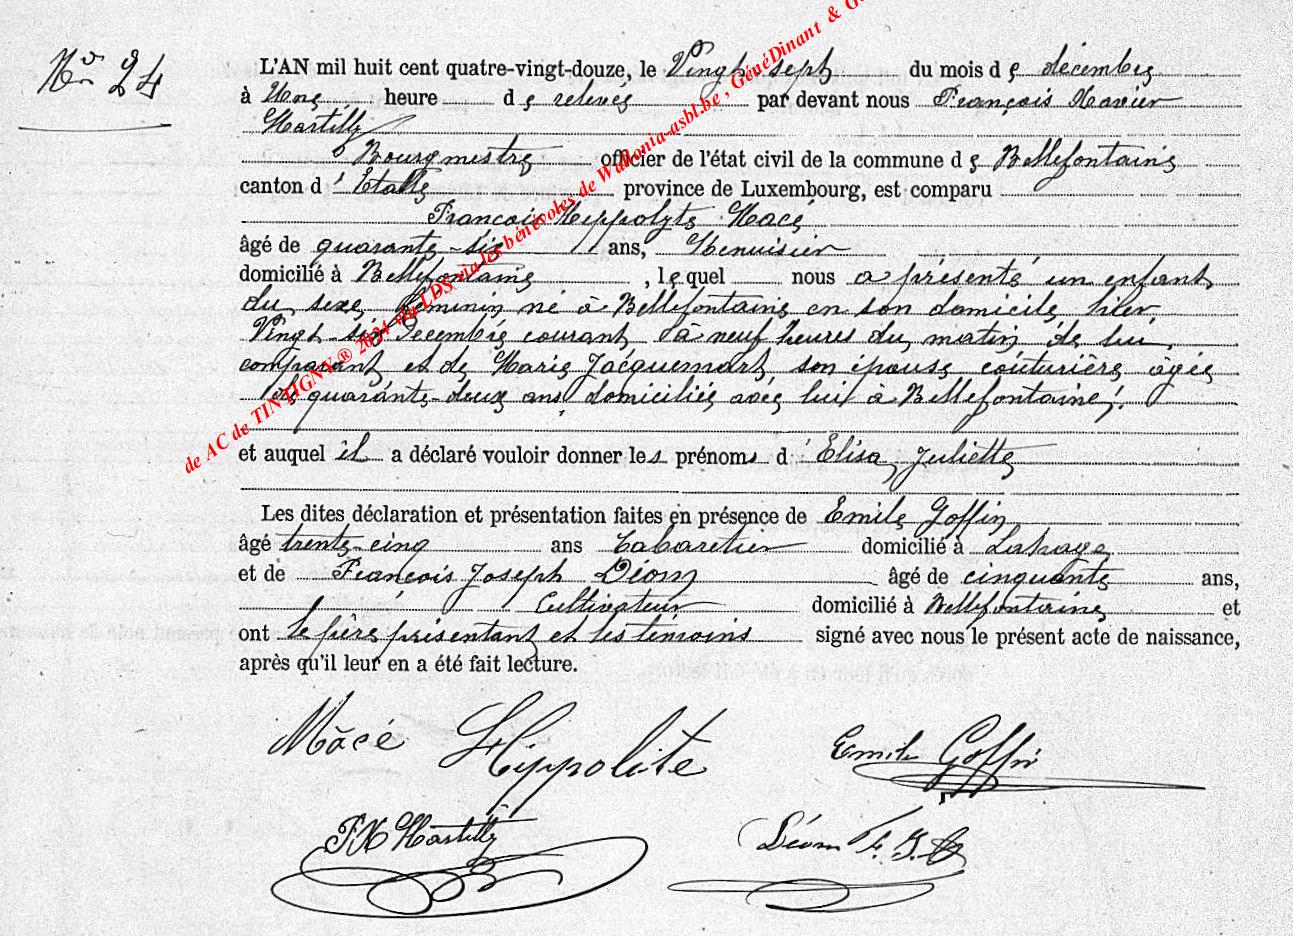 No 24
L'AN mil huit cent quatre-vingt-douze, le Vingt-sept du mois de décembre
à Une heure de relevée par devant nous François Xavier
Hartilly
Bourgmestre officier de l'état civil de la commune de Bellefontaine
canton d'Etalle province de Luxembourg, est comparu
François Hippolyte Macé
âgé de quarante-six ans, Menuisier
domicilié à Bellefontaine, lequel nous a présenté un enfant
du sexe féminin né à Bellefontaine en son domicile hier
Vingt-six Decembre courant à neuf heures du matin de lui
comparant et de Marie Jacquemart son épouse couturière âgée
de quarante-deux ans domiciliée avec lui à Bellefontaine.
et auquel il a déclaré vouloir donner les prénoms d'Elisa Juliette
Les dites déclaration et présentation faites en présence de Emile Goffin
âgé trente-cinq ans Cabaretier domicilié à Lahage
et de François Joseph Déom âgé de cinquante ans,
Cultivateur domicilié à Bellefontaine et
ont le père présentant et les témoins signé avec nous le présent acte de naissance,
après qu'il leur en a été fait lecture.
Macé Hippolite Emile Goffin
FX Hartilly Déom F. J.
de AC de TINTIGNY ® 2024 via LDS via les bénévoles de Wallonia-asbl.be , GénéDinant & G